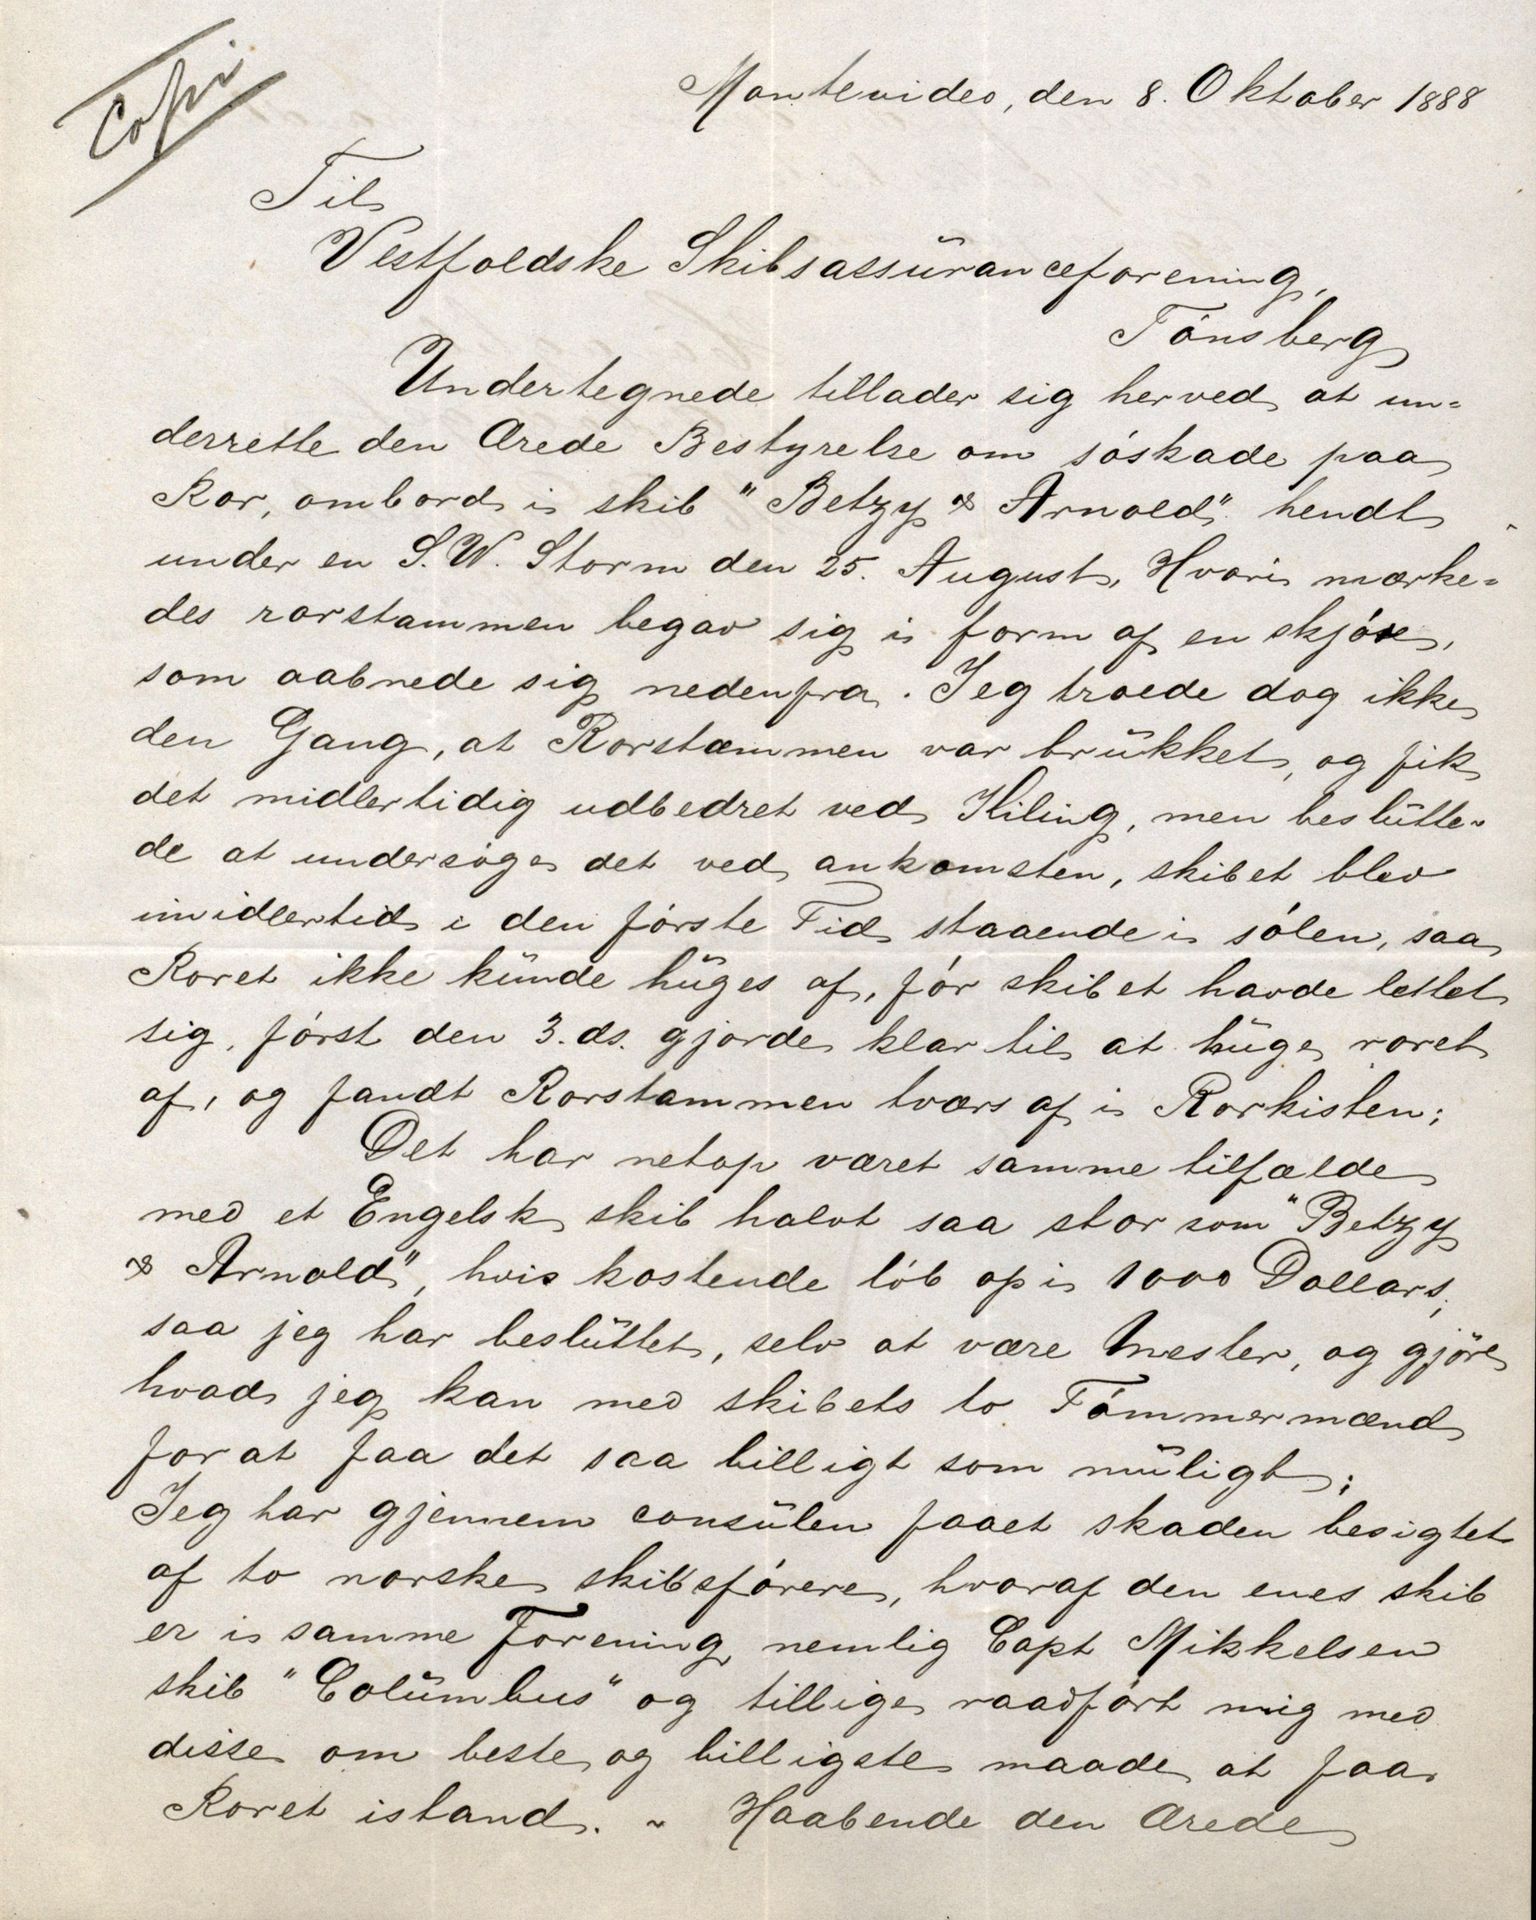 Copi
Montevideo, den 8. Oktober 1888
Til
Vestfoldske Skibsassüranceforening,
Tönsberg
Undertegnede tillader sig herved at un=
derrette den Ærede Bestyrelse om söskade paa
Ror, ombord i skib "Betzy & Arnold" hendt
under en S.W. Storm den 25. August, Hvori mærke=
des rorstammen begav sig i form af en skjöre,
som aabnede sig nedenfra. Jeg troede dog ikke
den Gang, at Rorstammen var brükket, og fik
det midlertidig udbedret ved Kiling, men beslütte=
de at undersöge det ved ankomsten, skibet blev
imidlertid i den förste Tid staaende i sölen, saa
Roret ikke künde hüges af, för skibet havde lettet
sig, först den 3. ds. gjorde klar til at hüge roret
af, og fandt Rorstammen tværs af i Rorkisten;
Det har netop været samme tilfælde
med et Engelsk skib halvt saa stor som "Betzy
& Arnold", hvis kostende löb op i 1000 Dollars,
saa jeg har beslüttet, selv at være Mester, og gjöre
hvad jeg kan med skibets to Tömmermænd
for at faa det saa billigt som müligt;
Jeg har gjennem consülen faaet skaden besigtet
af to norske skibsförere, hvoraf den enes skib
er i samme Forening, nemlig Capt Mikkelsen
skib "Colümbus" og tillige raadfört mig med
disse om beste og billigste maade at faa
Roret istand. ~ Haabende den Ærede